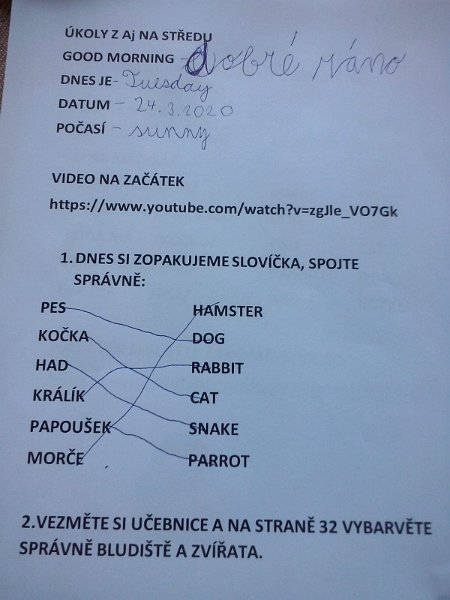 ÚKOLY Z Aj NA STŘEDU
GOOD MORNING - dobré ráno
DNES JE- Tuesday
DATUM - 24.3.2020
POČASÍ - sunny
VIDEO NA ZAČÁTEK
https://www.youtube.com/watch?v=zgJle_VO7Gk
1. DNES SI ZOPAKUJEME SLOVÍČKA, SPOJTE
SPRÁVNĚ:
PES HAMSTER
KOČKA DOG
HAD RABBIT
KRÁLÍK CAT
PAPOUŠEK SNAKE
MORČE PARROT
2.VEZMĚTE SI UČEBNICE A NA STRANĚ 32 VYBARVĚTE
SPRÁVNĚ BLUDIŠTĚ A ZVÍŘATA.